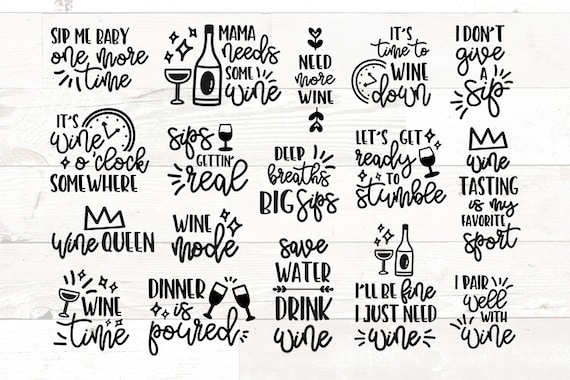 SIP ME BABY
one more
time
MAMA
needs
SOME
wine
NEED
more
WINE
IT'S
time to
WINE
down
I DON'T
give
A
sip
IT'S
wine
o'clock
SOMEWHERE
sips
GETTIN'
real
DEEP
breaths
BIG sips
LET'S GET
ready
TO
stumble
wine
TASTING
is my
FAVORITE
sport
wine QUEEN
WINE
mode
save
WATER
DRINK
wine
I'LL BE fine
I JUST NEED
wine
WINE
time
DINNER
is
poured
I PAIR
well
WITH
wine